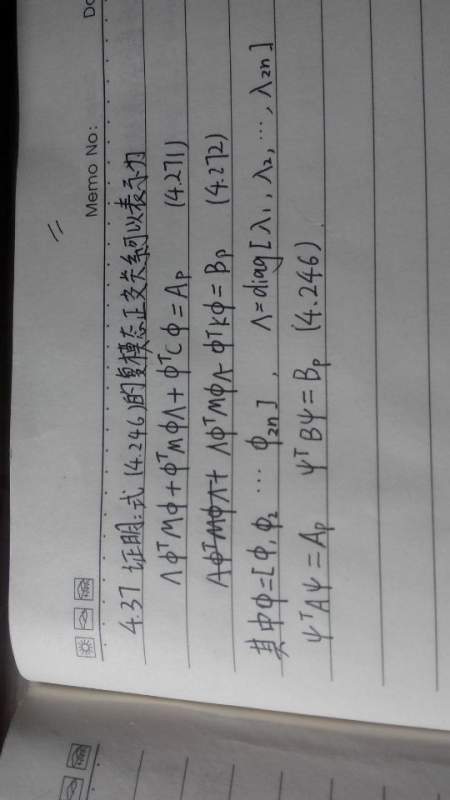 Memo No:
Da
4.37 证明:式(4.246)的复模态正交关系可以表示为
ΛΦᵀMΦ + ΦᵀMΦΛ + ΦᵀCΦ = Aₚ (4.271)
ΛΦᵀMΦΛ - ΦᵀKΦ = Bₚ (4.272)
其中Φ=[ϕ₁ ϕ₂ ⋯ ϕ₂ₙ], Λ=diag[λ₁, λ₂, ⋯, λ₂ₙ]
ΨᵀAΨ=Aₚ ΨᵀBΨ=Bₚ (4.246)